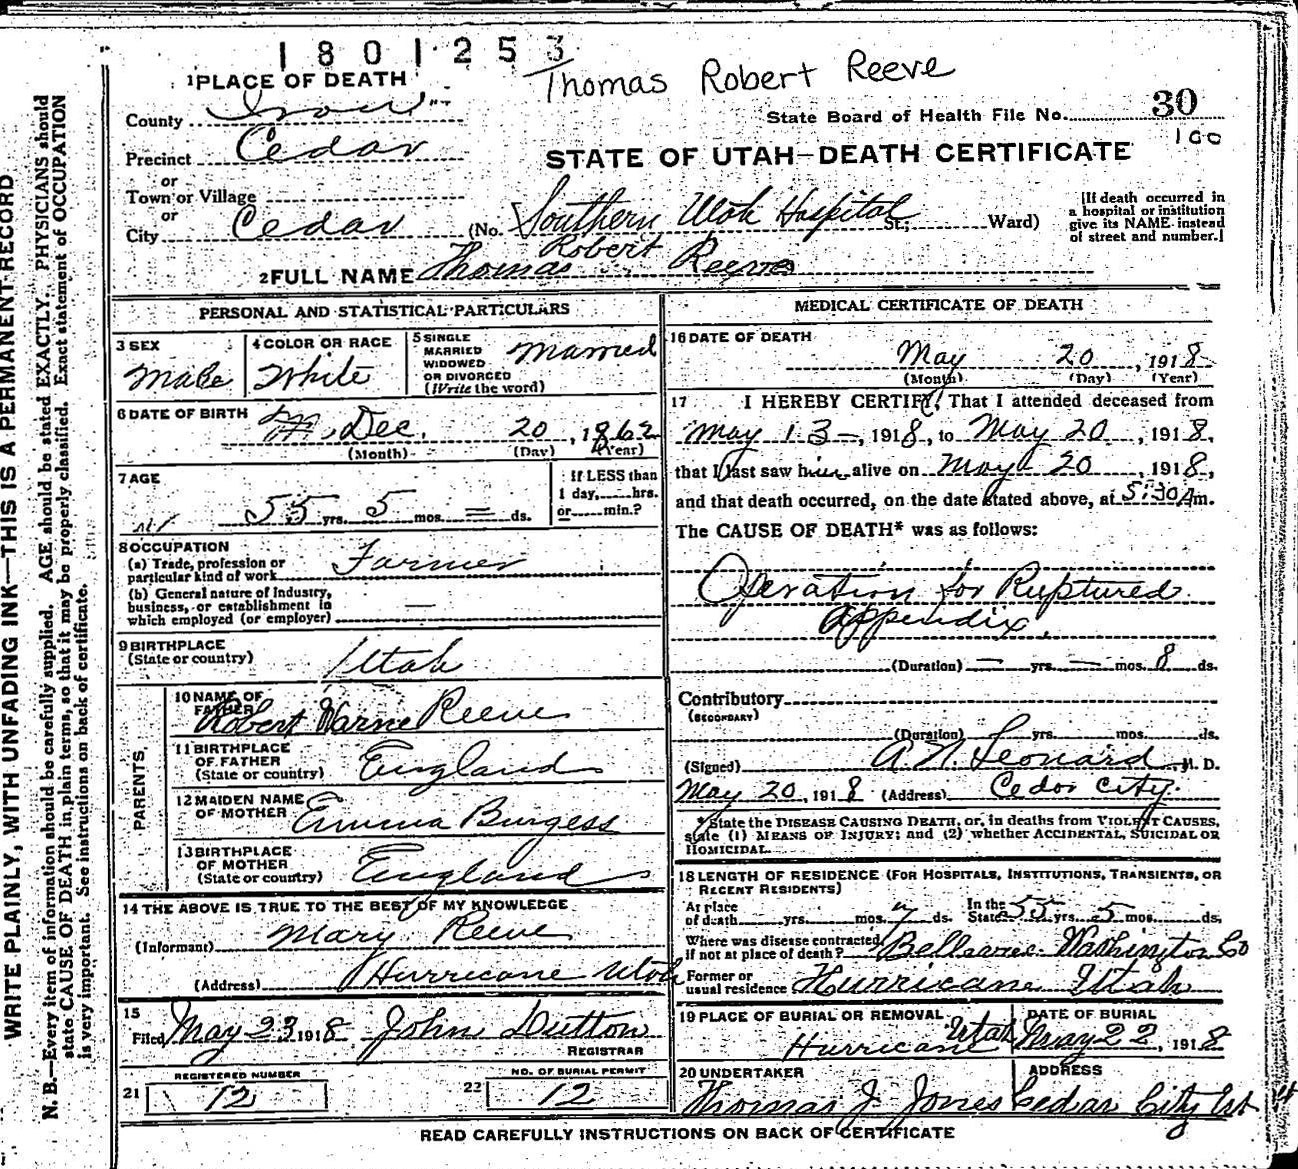 1801253
Thomas Robert Reeve
1 PLACE OF DEATH
County Iron
State Board of Health File No. 30
100
Precinct Cedar
STATE OF UTAH—DEATH CERTIFICATE
or
Town or Village
or
City Cedar (No. Southern Utah Hospital St.; Ward)
[If death occurred in
a hospital or institution
give its NAME instead
of street and number.]
Robert
2 FULL NAME Thomas Reeve
PERSONAL AND STATISTICAL PARTICULARS
3 SEX
Male
4 COLOR OR RACE
White
5 SINGLE
MARRIED
WIDOWED
OR DIVORCED
(Write the word)
Married
6 DATE OF BIRTH
Dec. 20, 1862
(Month) (Day) (Year)
7 AGE
55 yrs. 5 mos. = ds.
If LESS than
1 day, hrs.
or min.?
8 OCCUPATION
(a) Trade, profession or
particular kind of work Farmer
(b) General nature of Industry,
business, or establishment in
which employed (or employer) —
9 BIRTHPLACE
(State or country) Utah
PARENTS
10 NAME OF
FATHER Robert Warne Reeve
11 BIRTHPLACE
OF FATHER
(State or country) England
12 MAIDEN NAME
OF MOTHER Emma Burgess
13 BIRTHPLACE
OF MOTHER
(State or country) England
14 THE ABOVE IS TRUE TO THE BEST OF MY KNOWLEDGE
(Informant) Mary Reeve
(Address) Hurricane Utah
15
Filed May 23 1918 John Dutton
REGISTRAR
21 REGISTERED NUMBER
12
22 NO. OF BURIAL PERMIT
12
MEDICAL CERTIFICATE OF DEATH
16 DATE OF DEATH
May 20, 1918
(Month) (Day) (Year)
17 I HEREBY CERTIFY, That I attended deceased from
May 13—, 1918, to May 20, 1918,
that I last saw him alive on May 20, 1918,
and that death occurred, on the date stated above, at 5:30 A m.
The CAUSE OF DEATH* was as follows:
Operation for Ruptured
Appendix.
(Duration) — yrs. — mos. 8 ds.
Contributory
(SECONDARY)
(Duration) yrs. mos. ds.
(Signed) A. N. Leonard M. D.
May 20, 1918 (Address) Cedar City.
* State the DISEASE CAUSING DEATH, or, in deaths from VIOLENT CAUSES,
state (1) MEANS OF INJURY; and (2) whether ACCIDENTAL, SUICIDAL OR
HOMICIDAL.
18 LENGTH OF RESIDENCE (FOR HOSPITALS, INSTITUTIONS, TRANSIENTS, OR
RECENT RESIDENTS)
At place
of death yrs. mos. 7 ds.
In the
State 55 yrs. 5 mos. ds.
Where was disease contracted,
if not at place of death? Washington Co
Former or
usual residence Hurricane Utah
19 PLACE OF BURIAL OR REMOVAL
Hurricane Utah
DATE OF BURIAL
May 22, 1918
20 UNDERTAKER
Thomas J. Jones
ADDRESS
Cedar City
READ CAREFULLY INSTRUCTIONS ON BACK OF CERTIFICATE
WRITE PLAINLY, WITH UNFADING INK—THIS IS A PERMANENT RECORD
N. B.—Every item of information should be carefully supplied. AGE should be stated EXACTLY. PHYSICIANS should
state CAUSE OF DEATH in plain terms, so that it may be properly classified. Exact statement of OCCUPATION
is very important. See instructions on back of certificate.